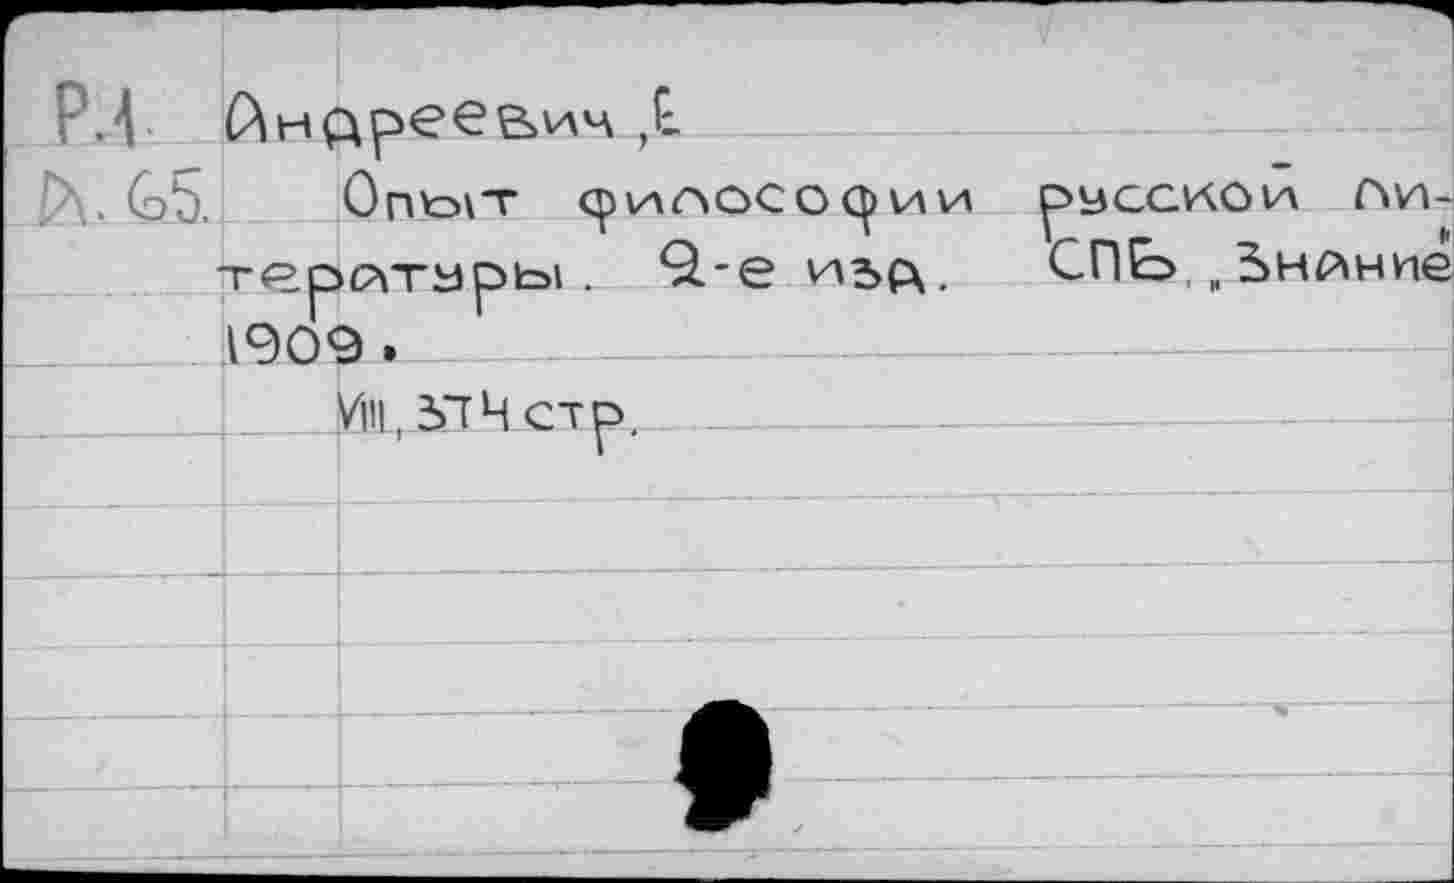 Р.1 Андреевич, Е.
А.65. Опыт философии русской ли-
тературы. 2-е изд. СПБ, „Знание"
1909.
VIII, 374 стр.